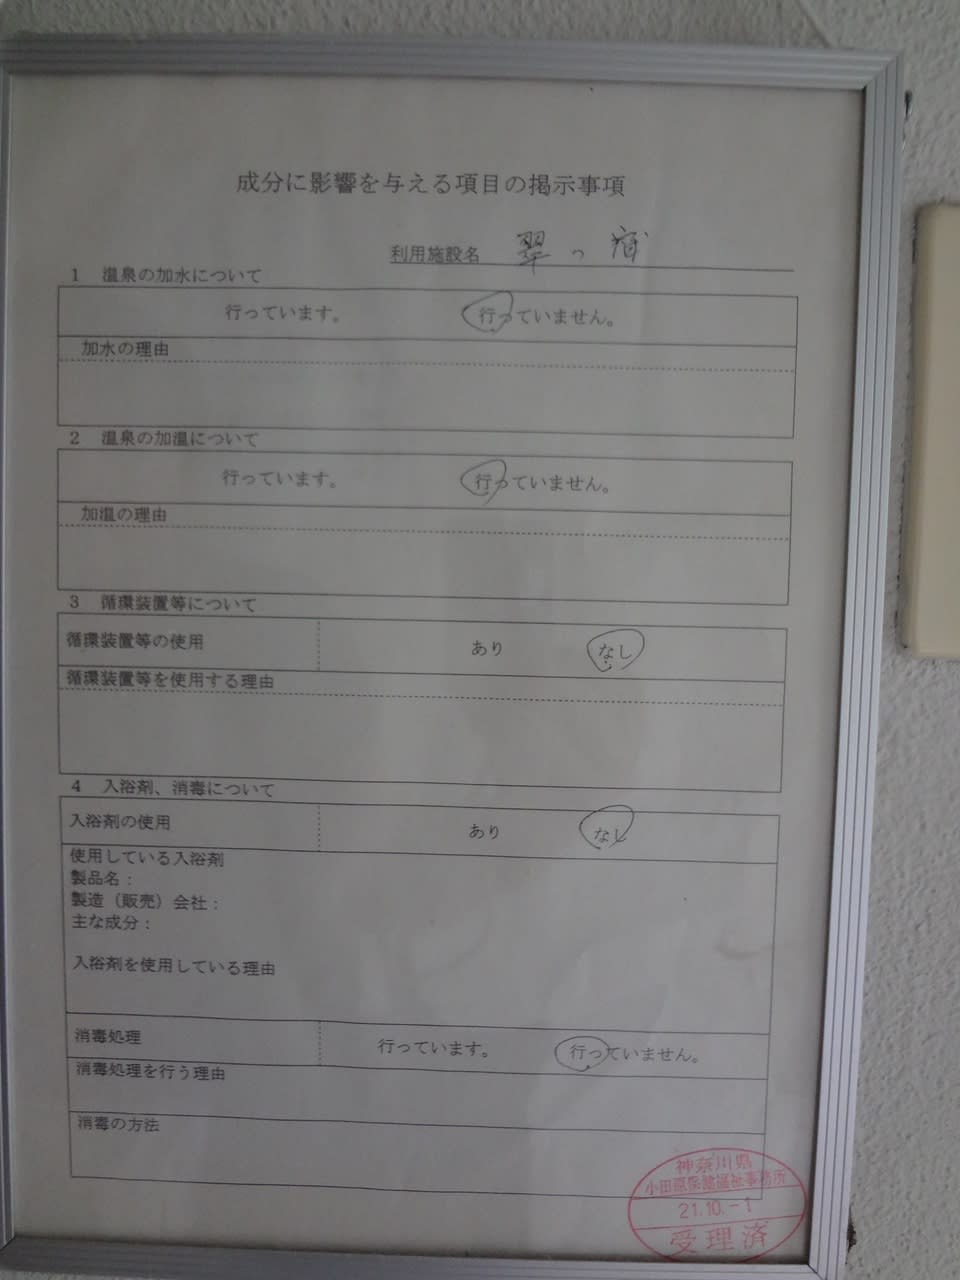 成分に影響を与える項目の掲示事項
利用施設名 翠の宿
1 温泉の加水について
行っています。 行っていません。
加水の理由
2 温泉の加温について
行っています。 行っていません。
加温の理由
3 循環装置等について
循環装置等の使用 あり なし
循環装置等を使用する理由
4 入浴剤、消毒について
入浴剤の使用 あり なし
使用している入浴剤
製品名：
製造（販売）会社：
主な成分：
入浴剤を使用している理由
消毒処理 行っています。 行っていません。
消毒処理を行う理由
消毒の方法
神奈川県
小田原保健福祉事務所
21.10.-1
受理済